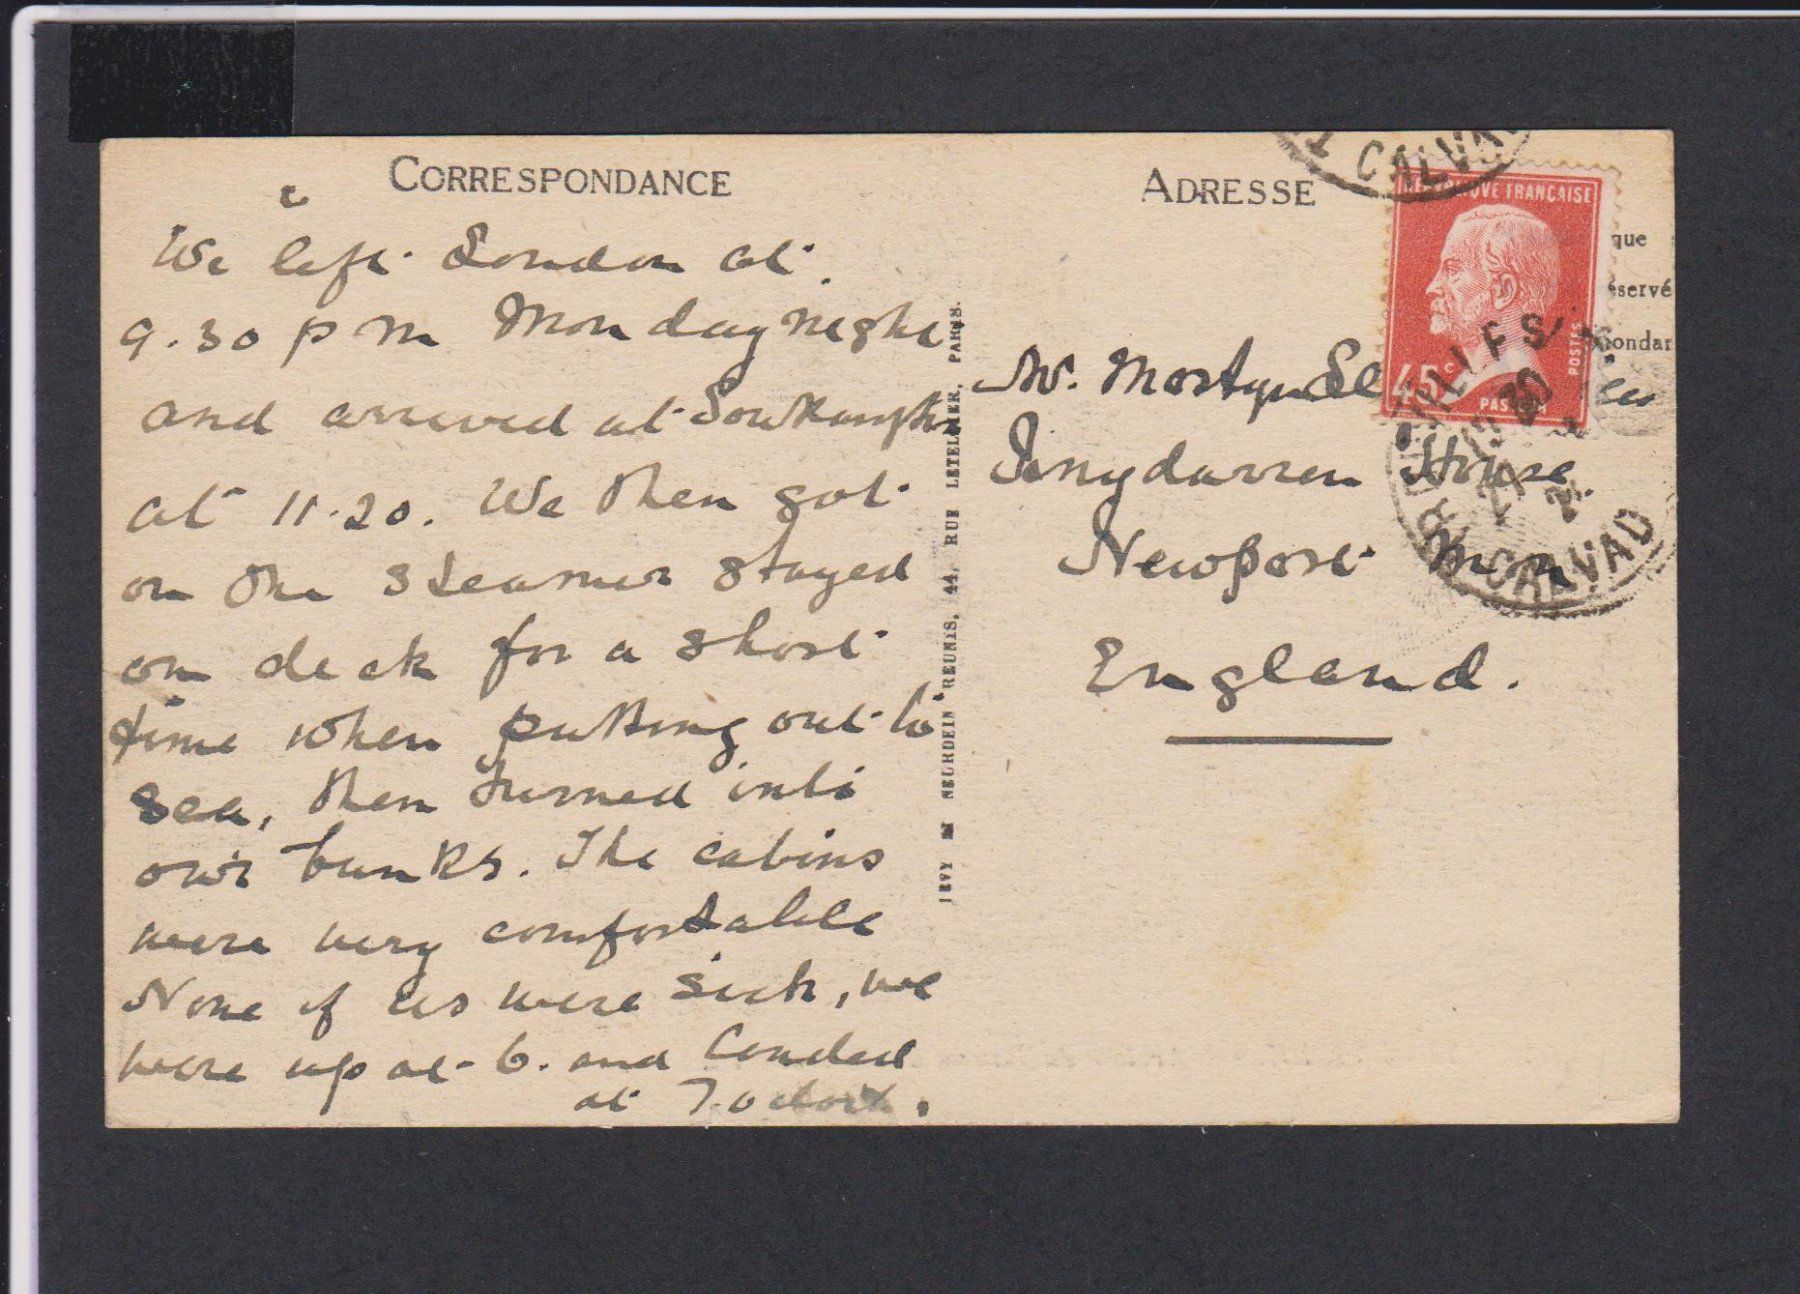 CORRESPONDANCE
We left London at
9.30 p m Monday night
and arrived at Southampton
at 11.20. We then got
on the steamer stayed
on deck for a short
time when putting out to
sea, then turned into
our bunks. The cabins
were very comfortable
None of us were sick, we
were up at 6. and landed
at 7.o clock.
LEVY ET NEURDEIN REUNIS, 44, RUE LETELLIER, PARIS.
ADRESSE
CALVA
REPUBLIQUE FRANÇAISE
45c
POSTES
PASTEUR
que
éservé
pondan
Mr. Mostyn
Penydarren House
Newport Mon
England.
CALVAD